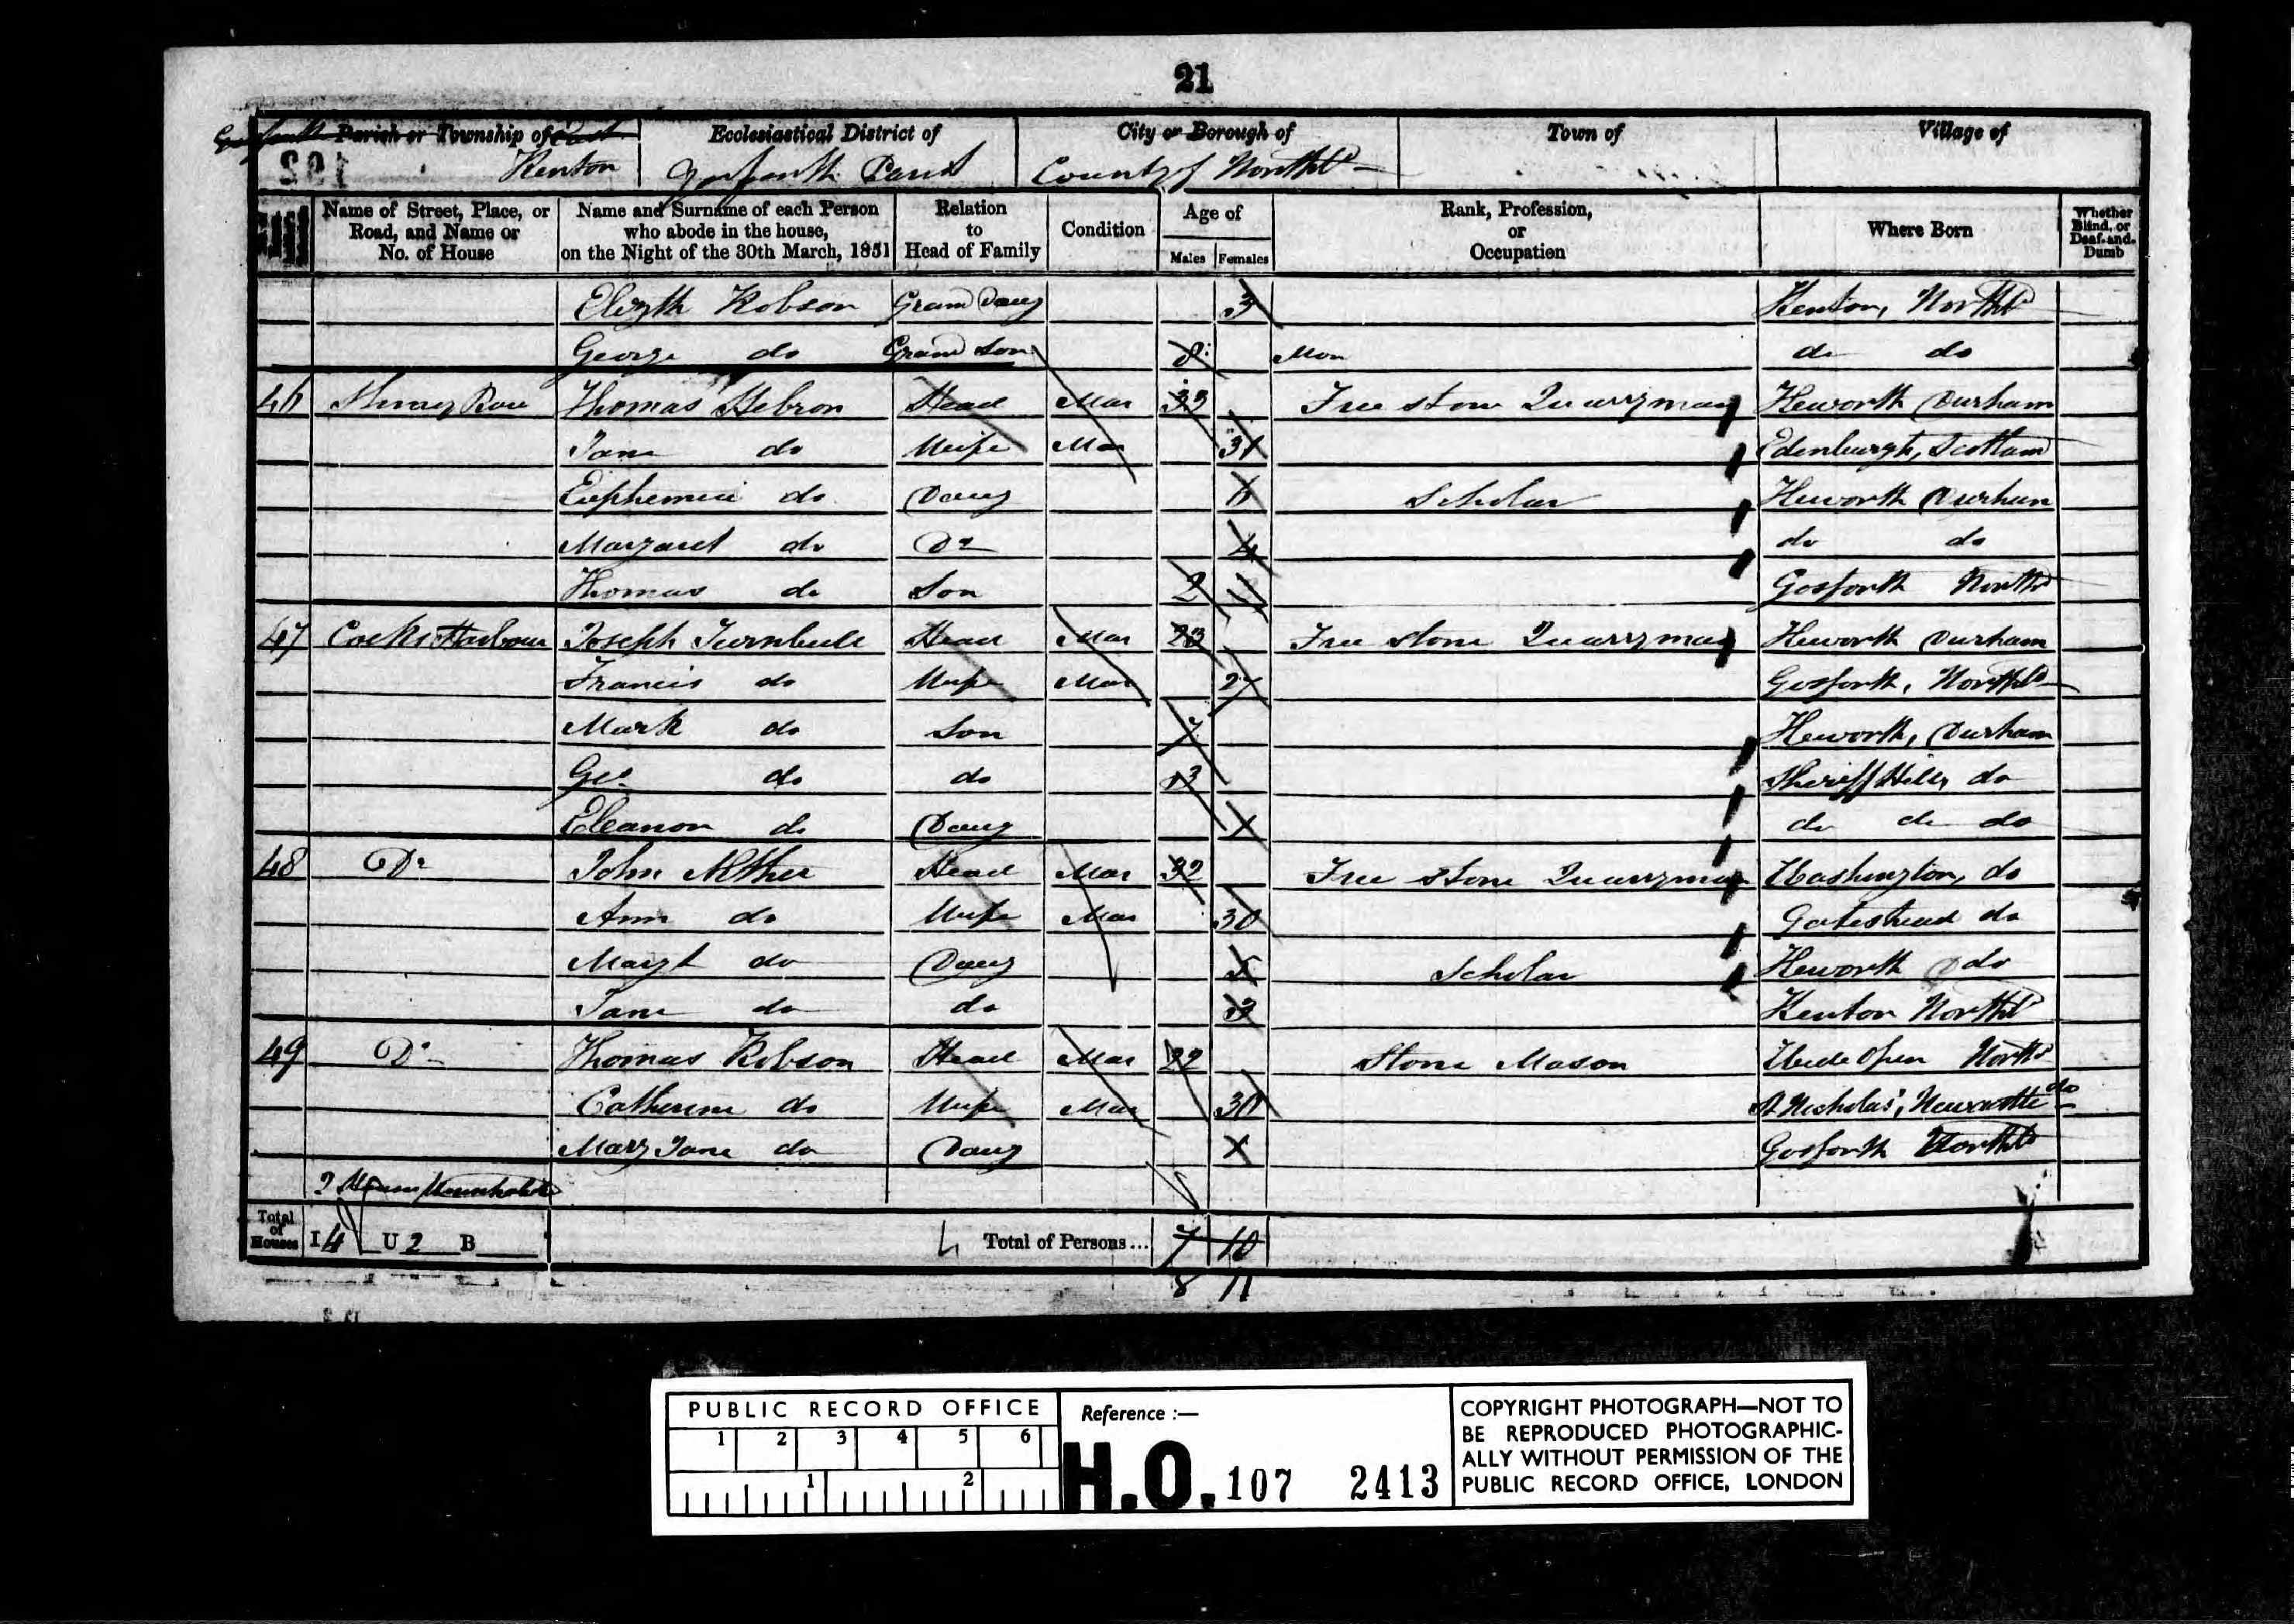 21
Parish or Township of
Ecclesiastical District of
City or Borough of
Town of
Village of
Kenton
Gosforth Parish
County of Northd
Name of Street, Place, or Road, and Name or No. of House
Name and Surname of each Person who abode in the house, on the Night of the 30th March, 1851
Relation to Head of Family
Condition
Age of
Males
Females
Rank, Profession, or Occupation
Where Born
Whether Blind, or Deaf-and-Dumb
Elizth Robson Grand Daug 3 Kenton, Northd
George do Grand Son 8 Mon do do
46 Row Thomas Hebron Head Mar 33 Free stone Quarryman Heworth Durham
Jane do Wife Mar 31 Edenburgh, Scotland
Euphemia do Daug 6 Scholar Heworth Durham
Margaret do Do 4 do do
Thomas do Son 2 Gosforth Northd
47 Joseph Turnbull Head Mar 23 Free stone Quarryman Heworth Durham
Francis do Wife Mar 27 Gosforth, Northd
Mark do Son 7 Heworth, Durham
Geo do do 3 Sheriff Hill, do
Eleanor do Daug do do do
48 Do John Head Mar 32 Free stone Quarryman Washington, do
Ann do Wife Mar 30 Gateshead do
Margt do Daug 5 Scholar Heworth do
Jane do do 2 Kenton Northd
49 Do Thomas Robson Head Mar 22 Stone Mason Wide Open Northd
Catherine do Wife Mar 30 St Nicholas', Newcastle do
Mary Jane do Daug Gosforth Northd
2 Houses Uninhabited
Total of Houses I 4 U 2 B
Total of Persons... 7 10
8 11
PUBLIC RECORD OFFICE
1 2 3 4 5 6
1 2
Reference :—
H.O. 107 2413
COPYRIGHT PHOTOGRAPH—NOT TO
BE REPRODUCED PHOTOGRAPHIC-
ALLY WITHOUT PERMISSION OF THE
PUBLIC RECORD OFFICE, LONDON